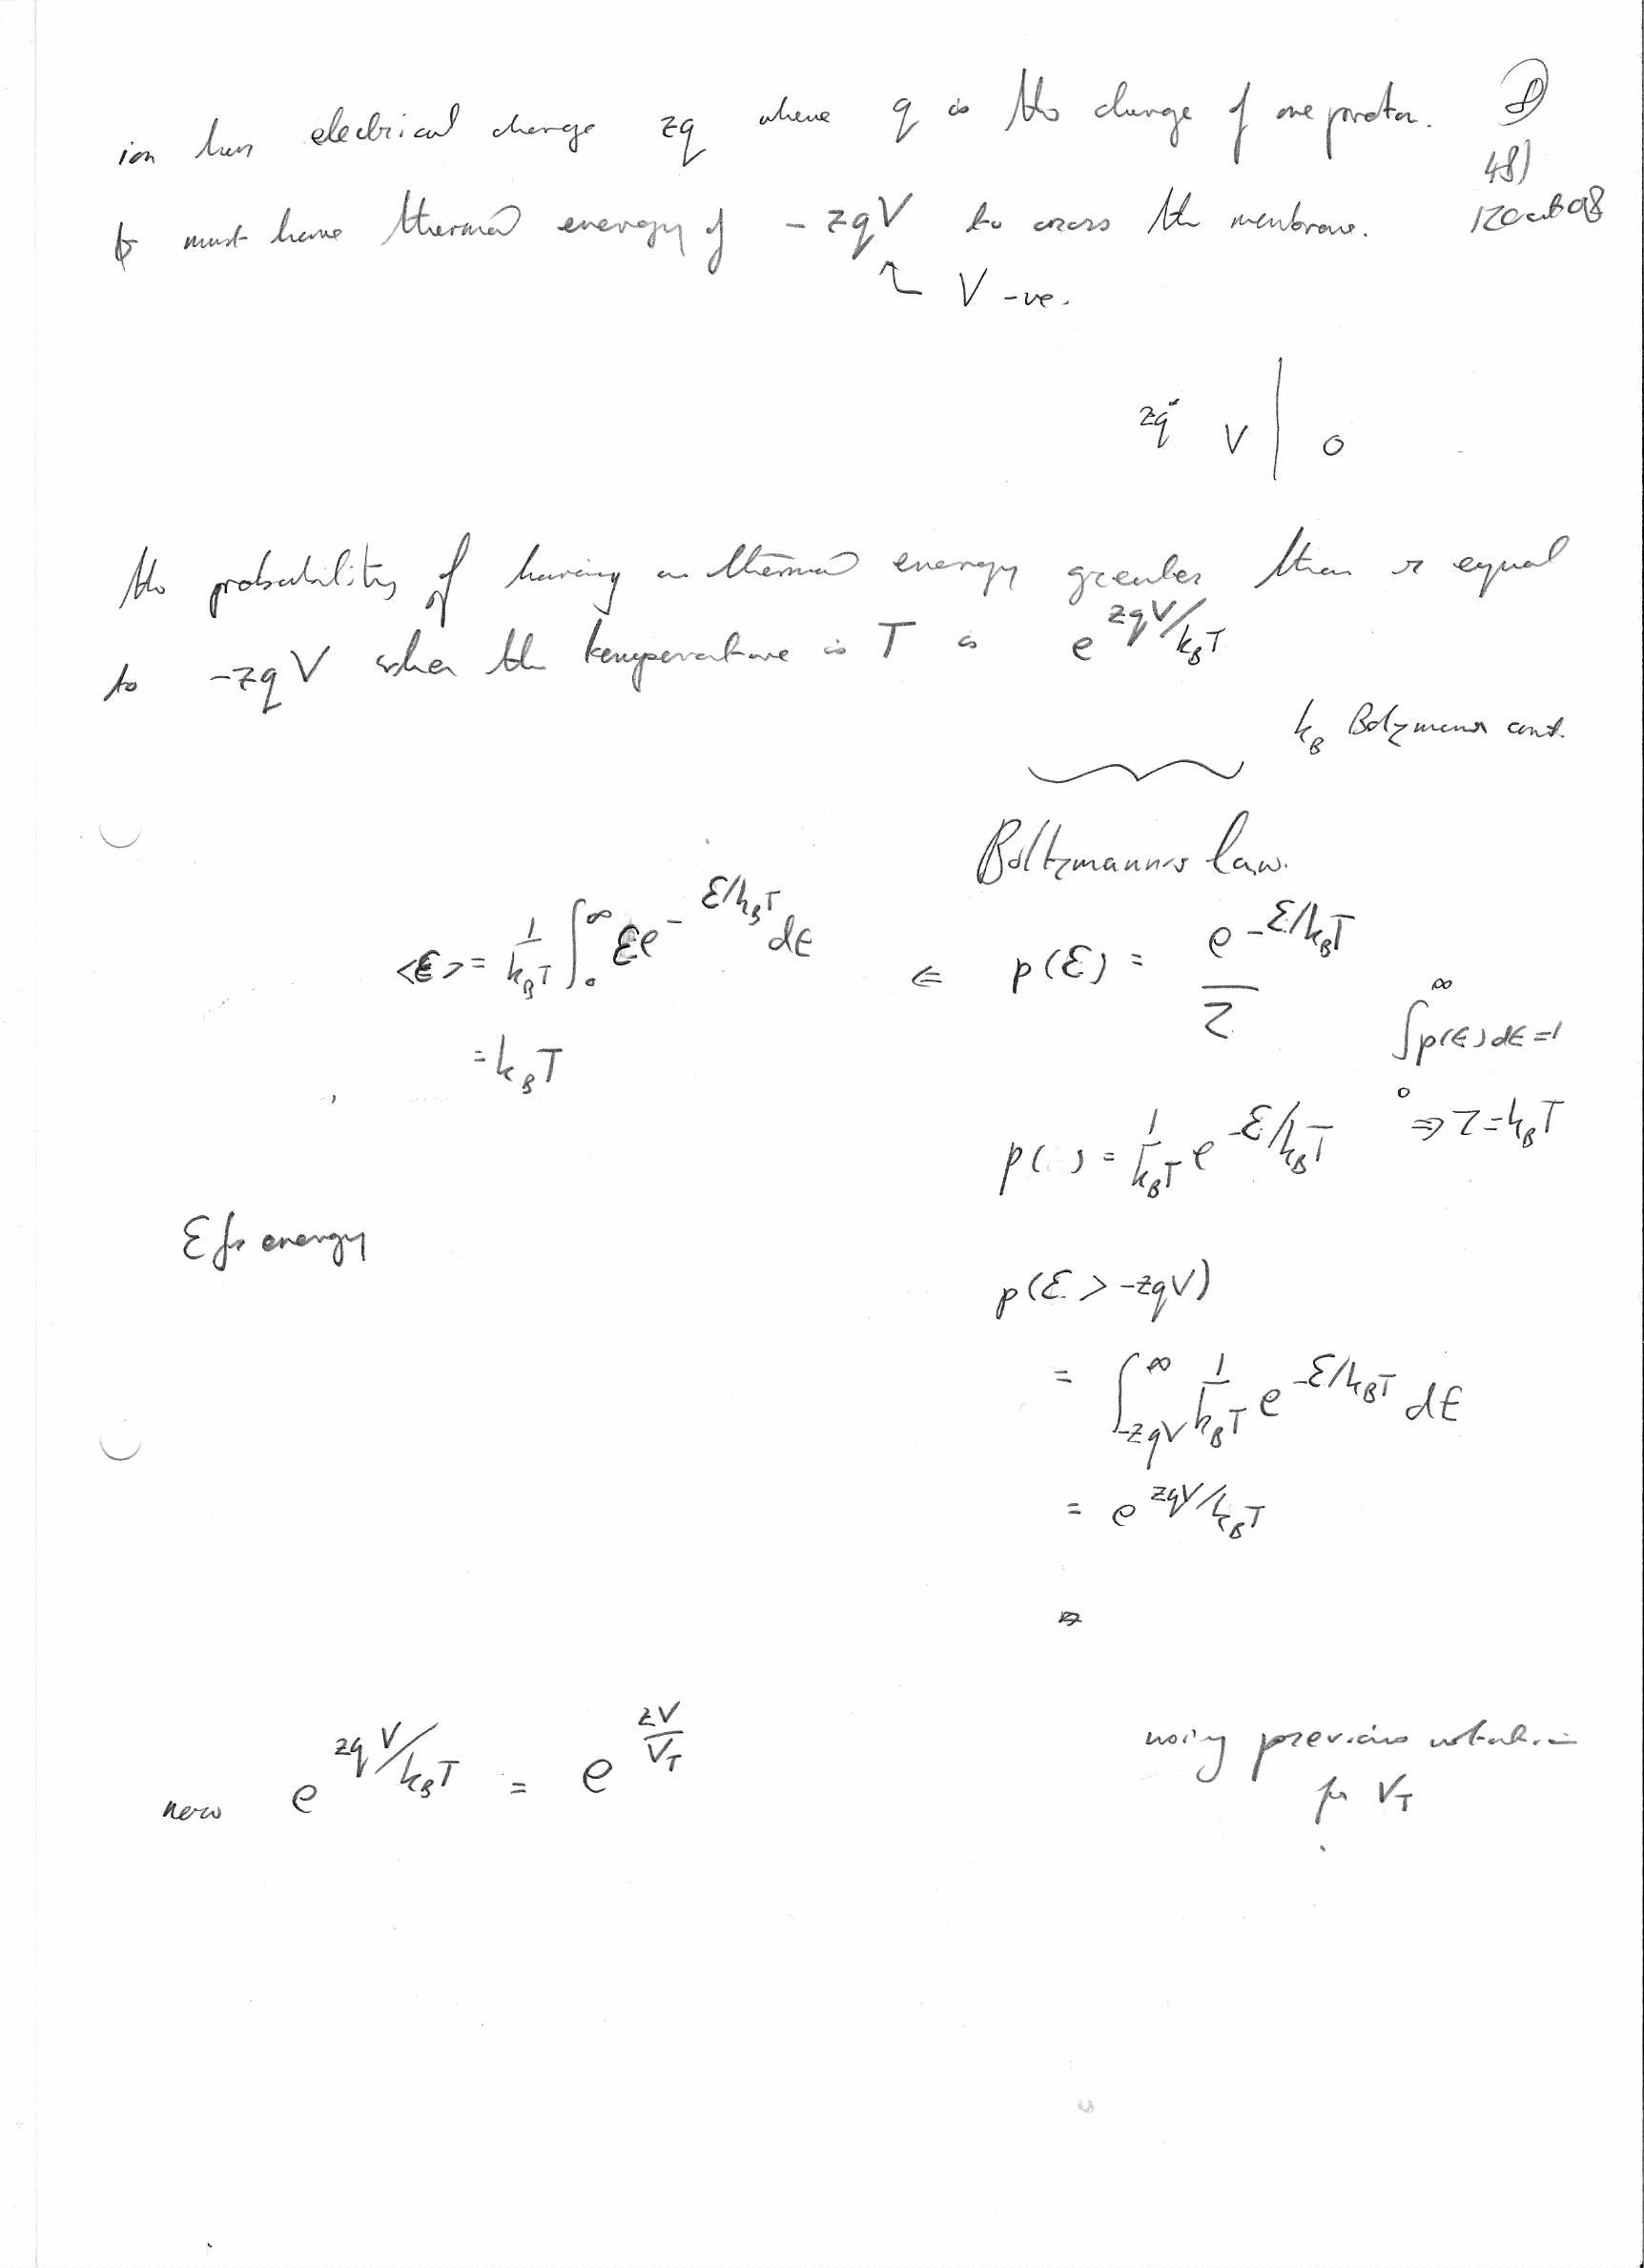 ion has electrical charge zq where q is the charge of one proton. 8
481
12 Oct 08
must have thermal energy of -zqV to cross the membrane.
V -ve.
zq V | 0
the probability of having an thermal energy greater than or equal
to -zqV when the temperature is T is e^{zqV/k_BT}
k_B Boltzmanns const.
Boltzmann's law.
<ε> = 1/k_BT ∫_0^∞ εe^{-ε/k_BT} dε ⇐ p(ε) = e^{-ε/k_BT}/Z
= k_BT
∫_0^∞ p(ε)dε=1
⇒ Z=k_BT
p( ) = 1/k_BT e^{-ε/k_BT}
ε for energy
p(ε > -zqV)
= ∫_{-zqV}^∞ 1/k_BT e^{-ε/k_BT} dε
= e^{zqV/k_BT}
now e^{zqV/k_BT} = e^{zV/V_T} using previous notation
for V_T